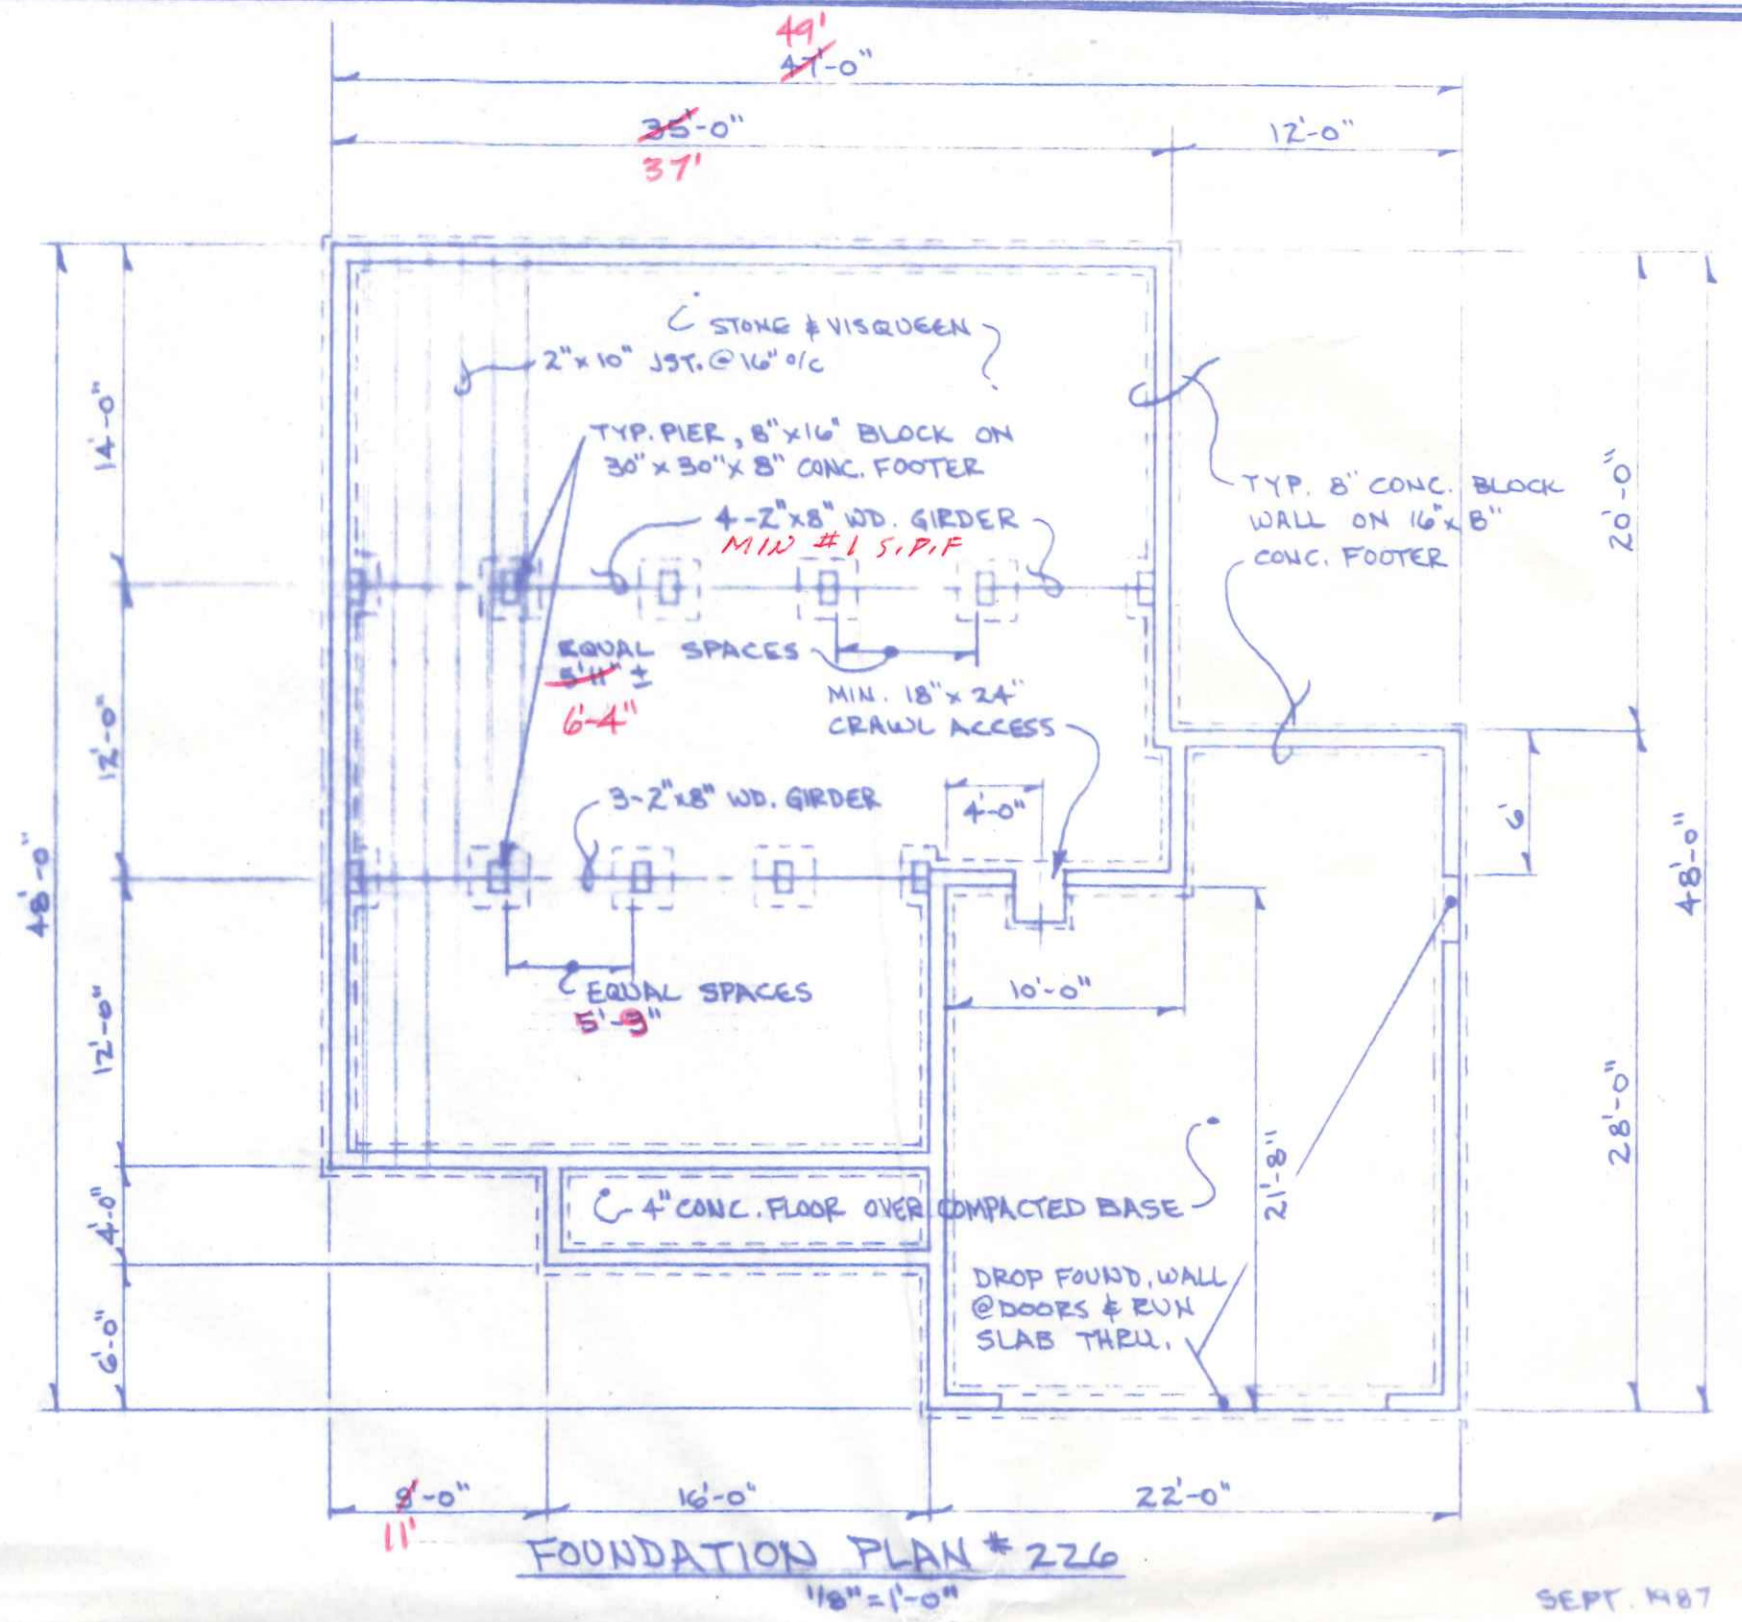 49'
47'-0"
35'-0"
37'
12'-0"
STONE & VISQUEEN
2"x10" JST. @ 16" o/c
14'-0"
TYP. PIER, 8"x16" BLOCK ON
30"x30"x8" CONC. FOOTER
4-2"x8" WD. GIRDER
MIN #1 S.P.F
TYP. 8" CONC. BLOCK
WALL ON 16"x8"
CONC. FOOTER
20'-0"
EQUAL SPACES
5'11" ±
6'-4"
MIN. 18"x24"
CRAWL ACCESS
12'-0"
3-2"x8" WD. GIRDER
4'-0"
6'
48'-0"
48'-0"
EQUAL SPACES
5'-3"
10'-0"
12'-0"
21'-8"
28'-0"
4'-0"
4" CONC. FLOOR OVER COMPACTED BASE
DROP FOUND. WALL
@ DOORS & RUN
SLAB THRU.
6'-0"
-0"
11'
16'-0"
22'-0"
FOUNDATION PLAN # 226
1/8"=1'-0"
SEPT. 1987